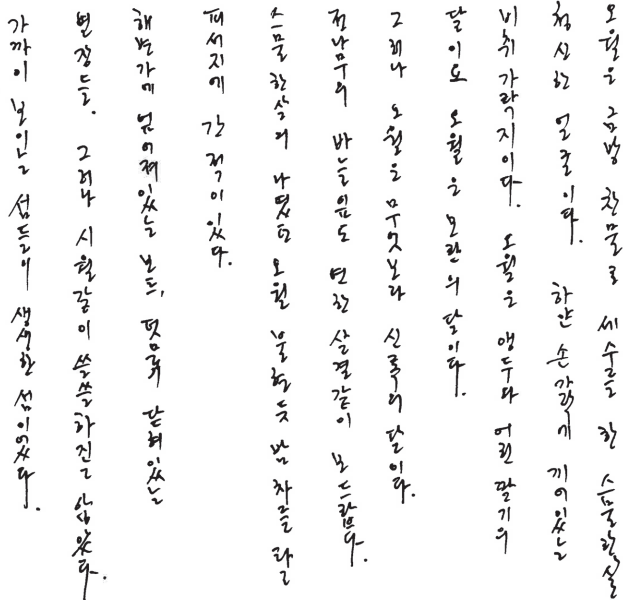 오월은 금방 찬물로 세수를 한 스물한살
청신한 얼굴이다. 하얀 손가락에 끼어있는
비취가락지이다. 오월은 앵두와 어린 딸기의
달이요 오월은 모란의 달이다.
그러나 오월은 무엇보다 신록의 달이다.
전나무의 바늘잎도 연한 살결같이 보드랍다.
스물 한살이 나였던 오월 불현듯 밤차를 타고
피서지에 간 적이 있다.
해변가에 엎어져있는 보트, 덧문이 닫혀있는
별장들. 그러나 시월같이 쓸쓸하진 않았다.
가까이 보이는 섬들이 생생한 섬이었다.